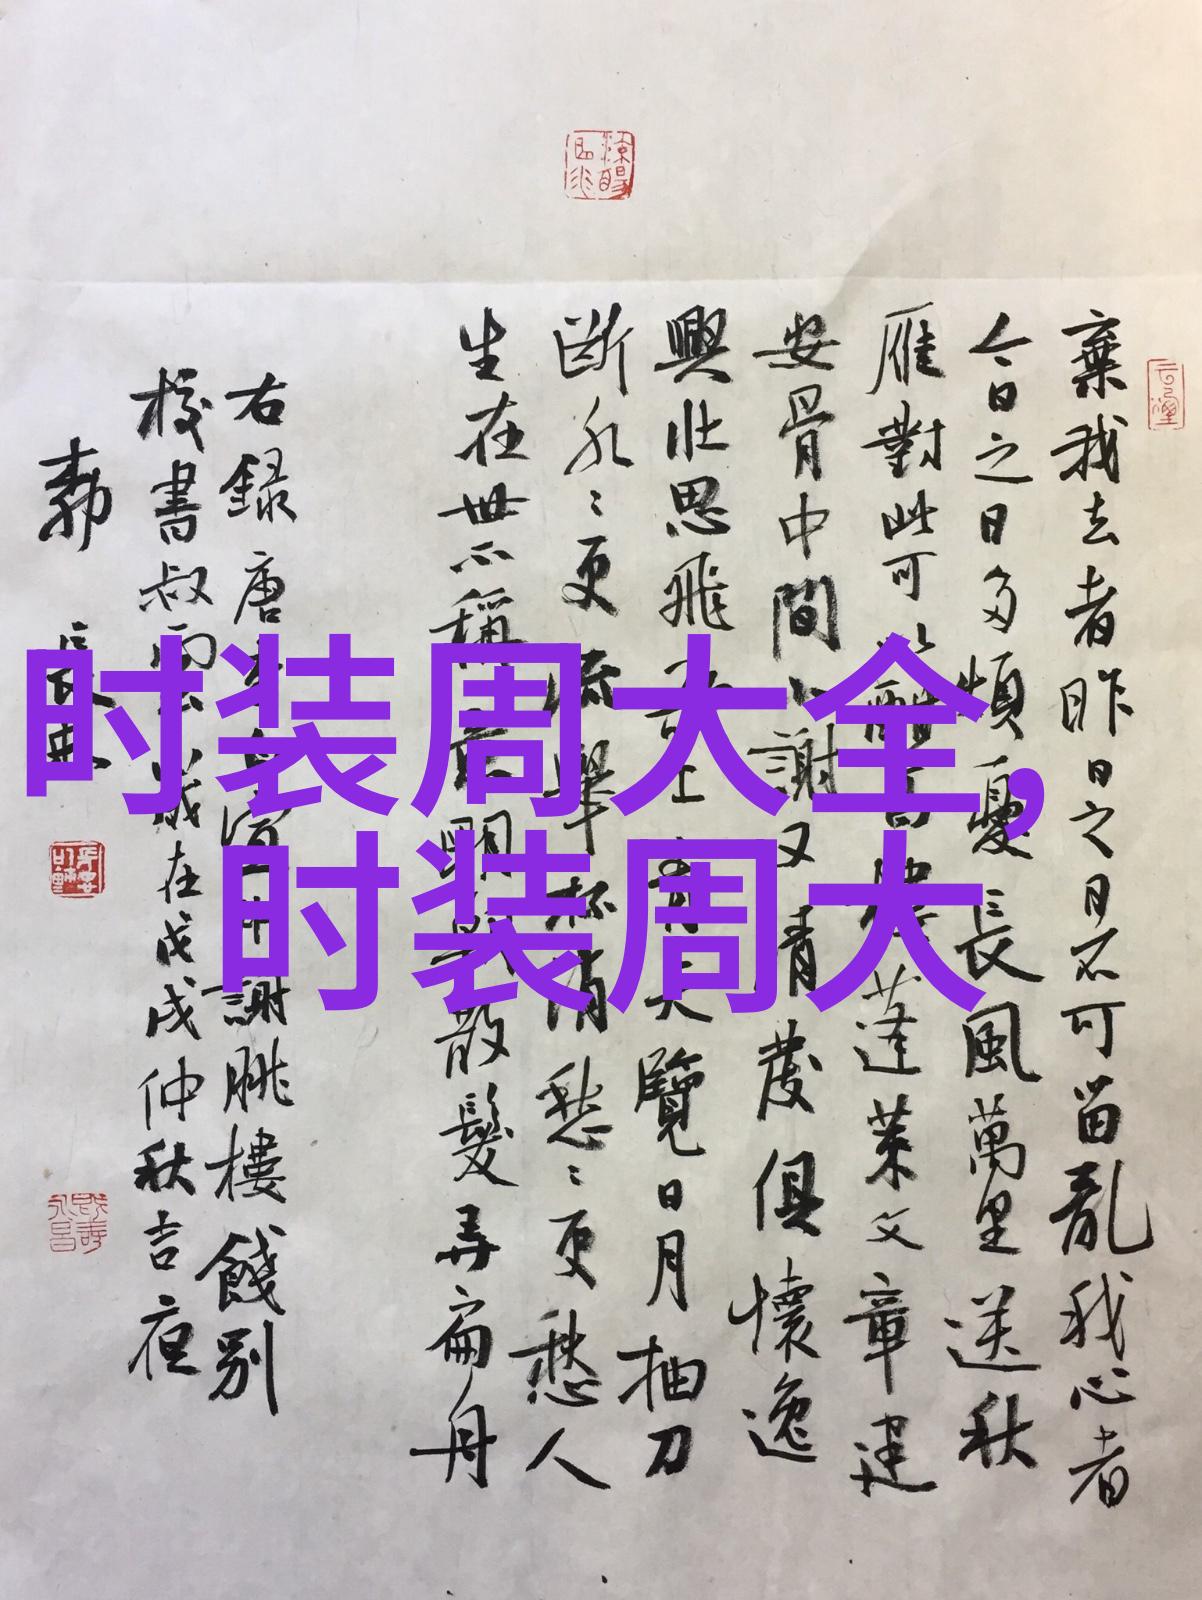 时装周大全,
时装周大
棄我去者昨日之日不可留亂我心者
今日之日多煩憂長風萬里送秋
雁對此可以酣高樓蓬萊文章建
安骨中間小謝又清發俱懷逸
興壯思飛上青天覽日月抽刀
斷水〻更流舉杯消愁〻更愁人
生在世不稱意明朝散髮弄扁舟
右録唐李白宣州謝朓樓餞別
校書叔雲歲在戊戌仲秋吉夜